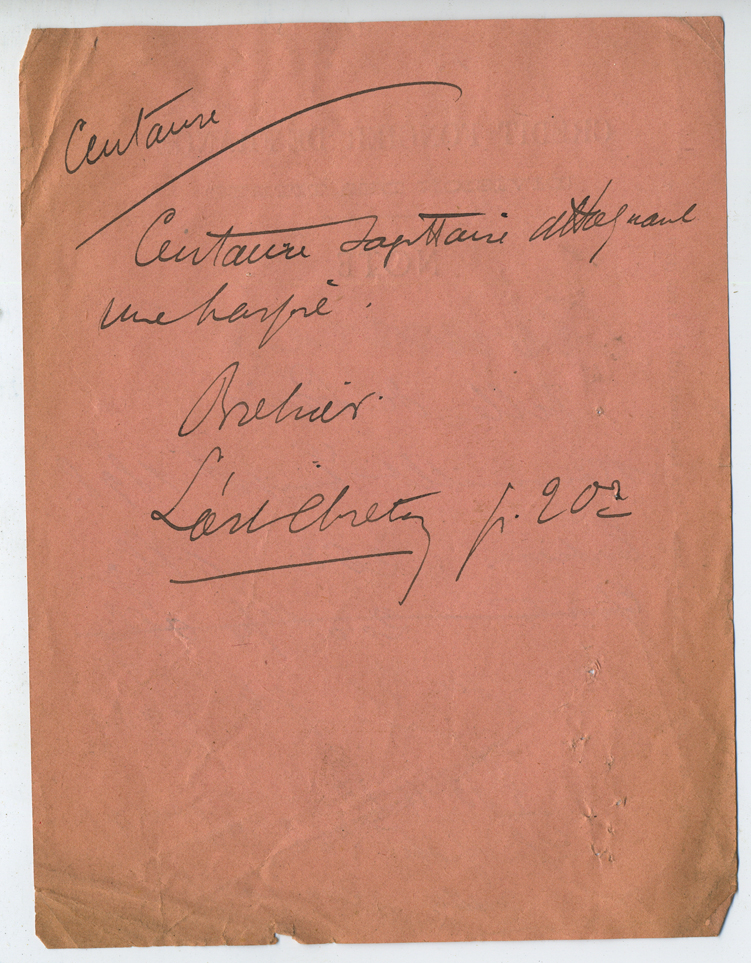 Centaure
Centaure sagittaire atteignant
une harpie.
Brehier.
L'art chretien p. 202